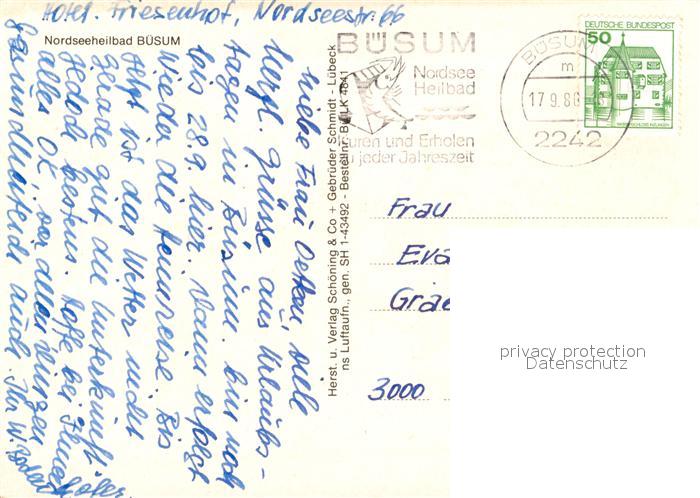 Hotel Friesenhof, Nordseestr. 66
Nordseeheilbad BÜSUM
Liebe Frau viele
herzl. Grüsse aus Urlaubs-
tagen in Büsum. bin noch
bis 28.9. hier. Dann erfolgt
wieder die Heimreise. Bis
jetzt ist das Wetter nicht
gerade gut die Unterkunft
jedoch bestens. hoffe bei Ihnen
alles OK vor allen Dingen
gesundheitlich auch. Ihr W.
Herst. u. Verlag Schöning & Co + Gebrüder Schmidt - Lübeck
ns Luftaufn., gen. SH 1-43492 - Bestellnr. B LK 4841
BÜSUM
Nordsee
Heilbad
Kuren und Erholen
zu jeder Jahreszeit
BÜSUM
m
17.9.80
2242
DEUTSCHE BUNDESPOST
50
WASSERSCHLOSS INZLINGEN
Frau
Eva
Grae
3000
privacy protection
Datenschutz